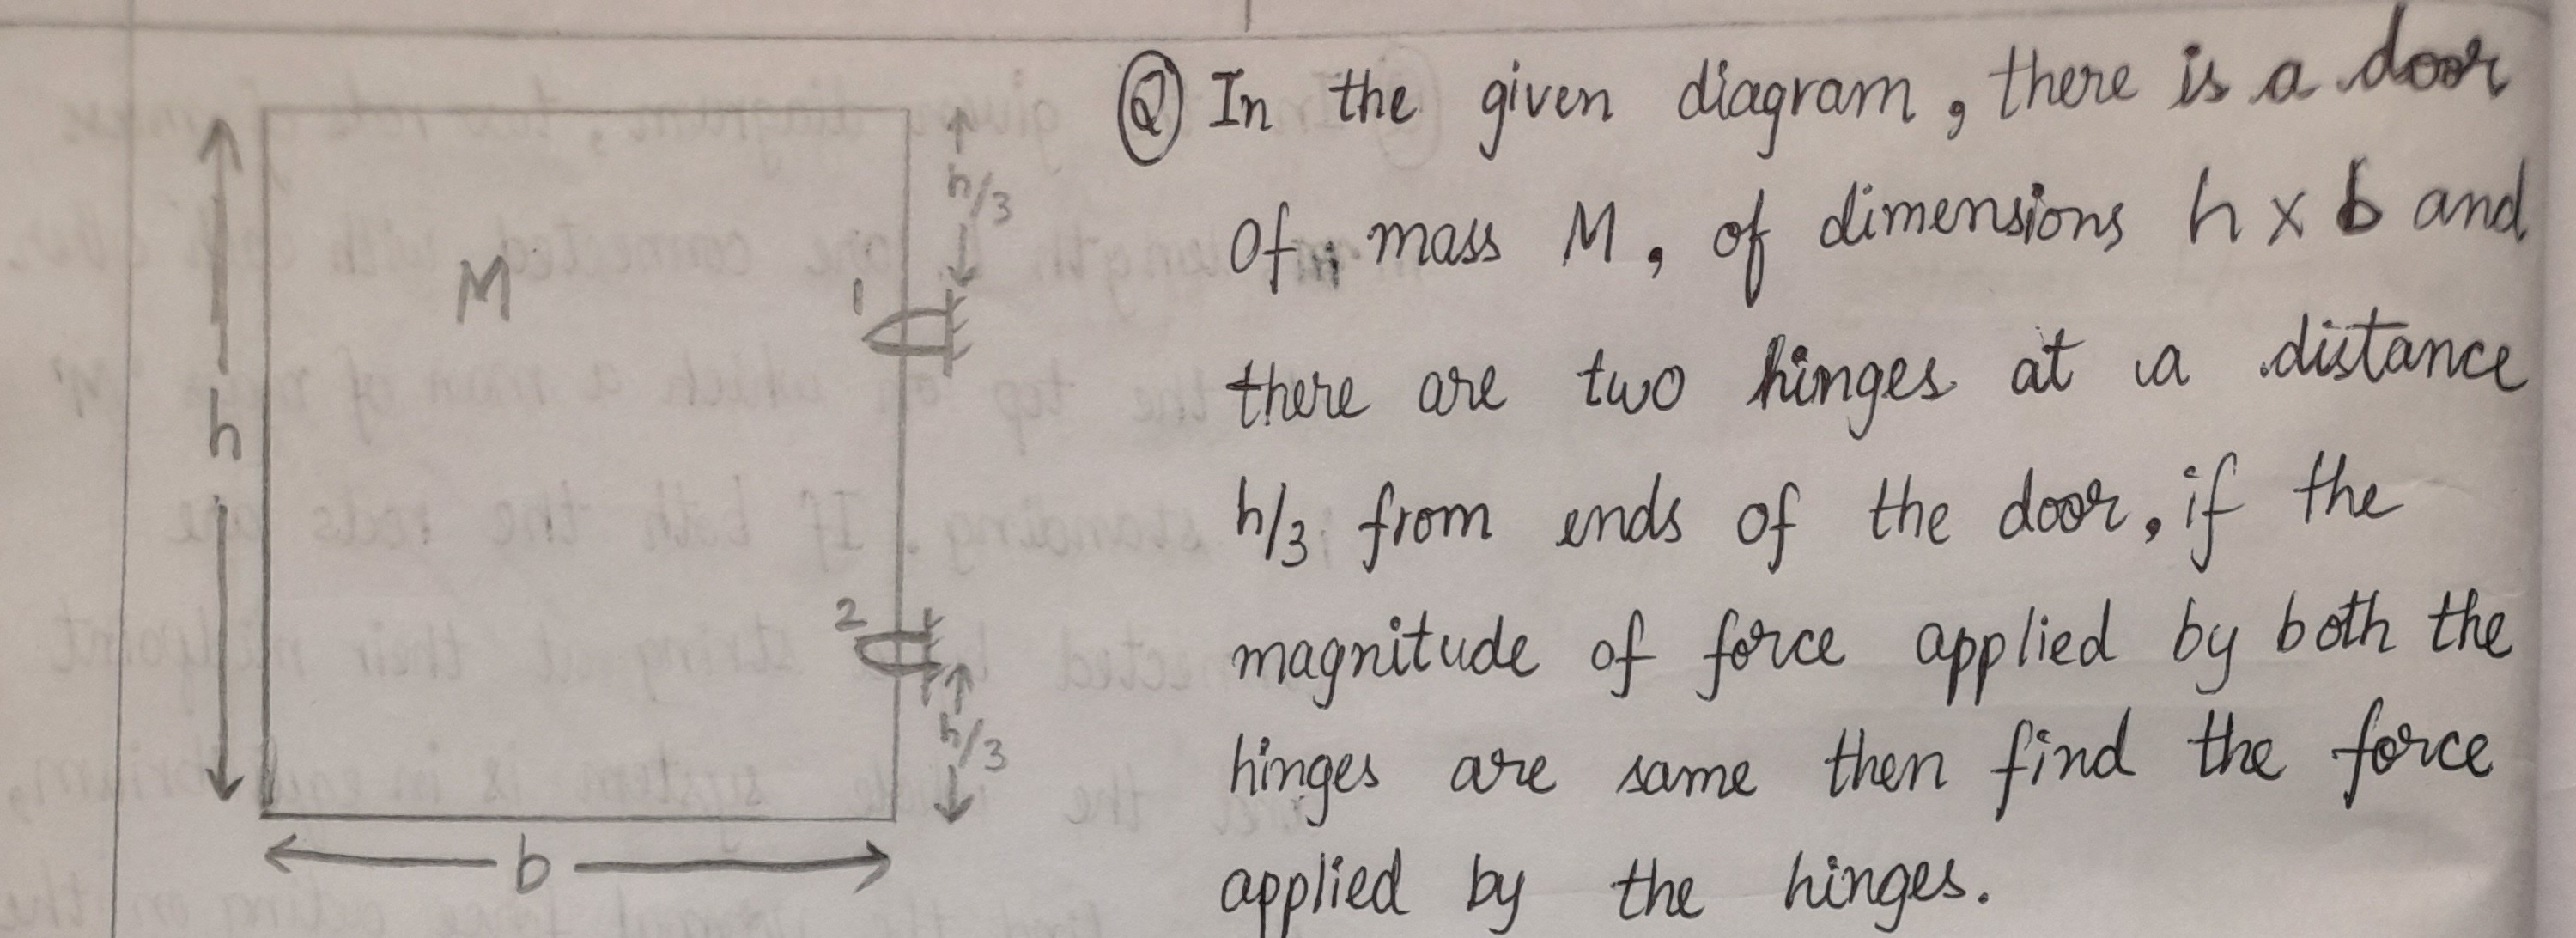 h
M
b
h/3
1
2
h/3
Q In the given diagram, there is a door
of mass M, of dimensions h x b and
there are two hinges at a distance
h/3 from ends of the door, if the
magnitude of force applied by both the
hinges are same then find the force
applied by the hinges.